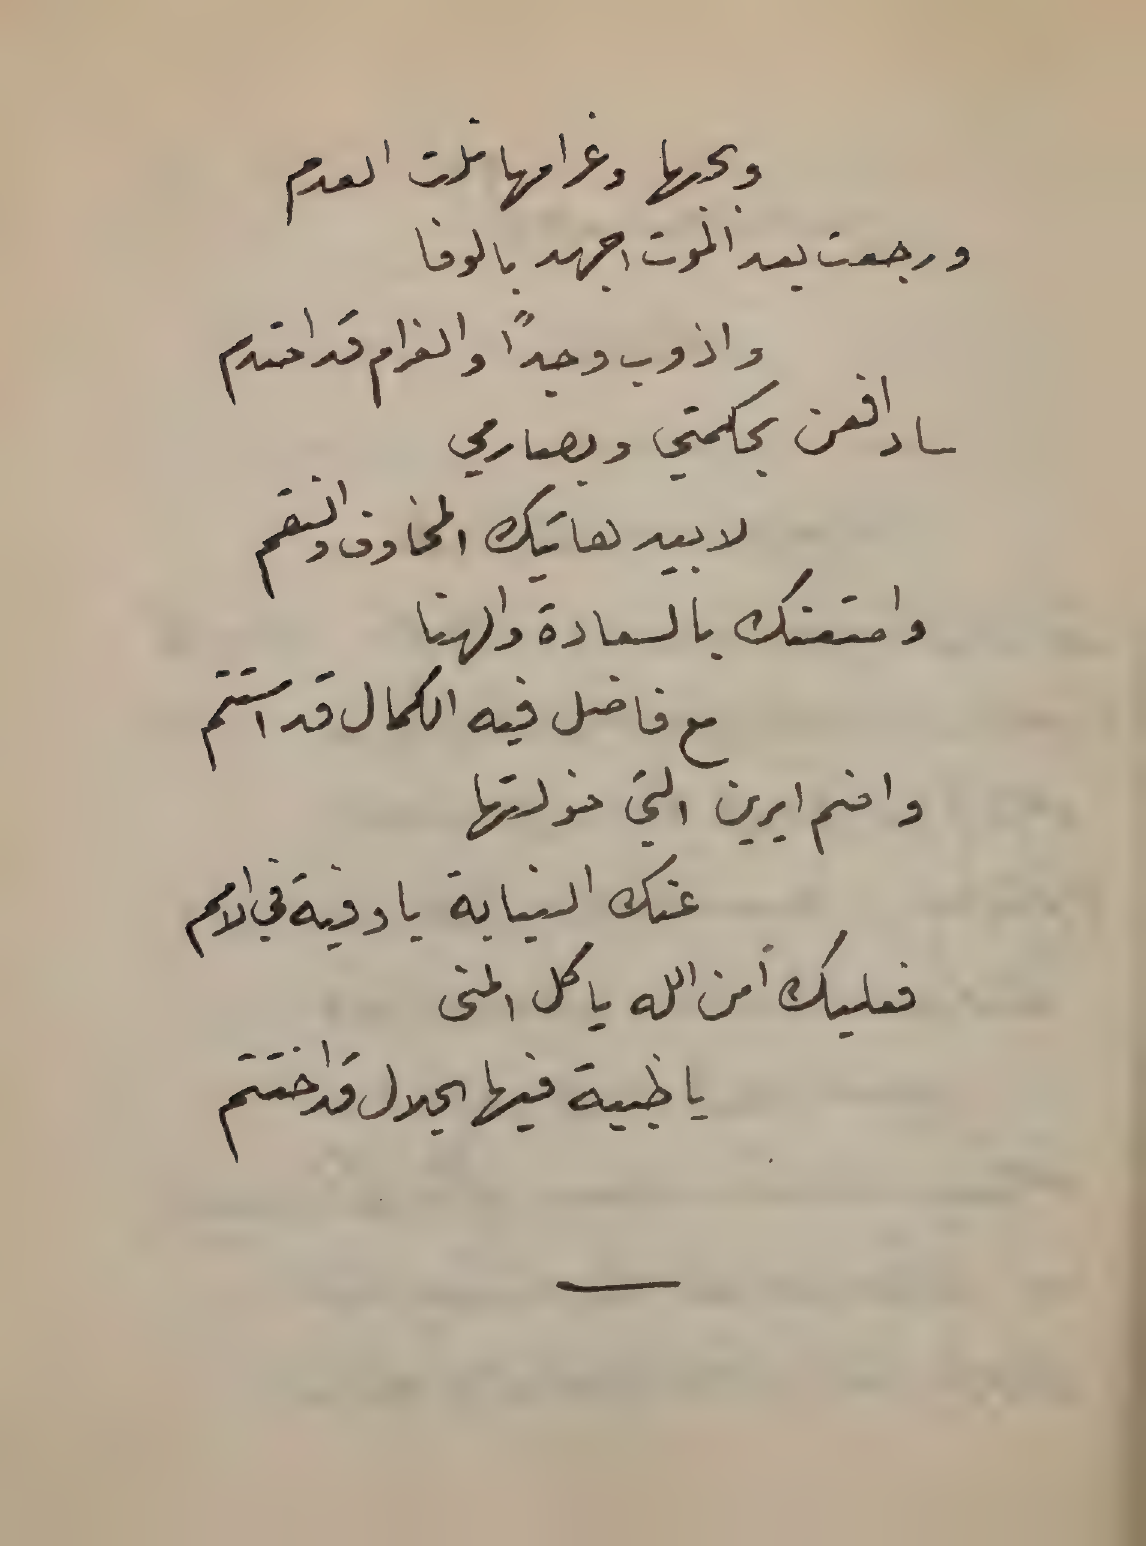 وبحبها وغرامها نلت العدم
ورجعت بعد الموت اجهد بالوفا
واذوب وجدًا والغرام قد احتدم
سادافعن بحكمتي وبصارمي
لابيد هاتيك المخاوف والنقم
وامتعنك بالسعادة والهنا
مع فاضل فيه الكمال قد استتم
وافنم ايرين التي خولتها
عنك النيابة يا وفية في الامم
فعليك أمن الله يا كل المنى
يا ظبية فيها الجلال قد اختتم